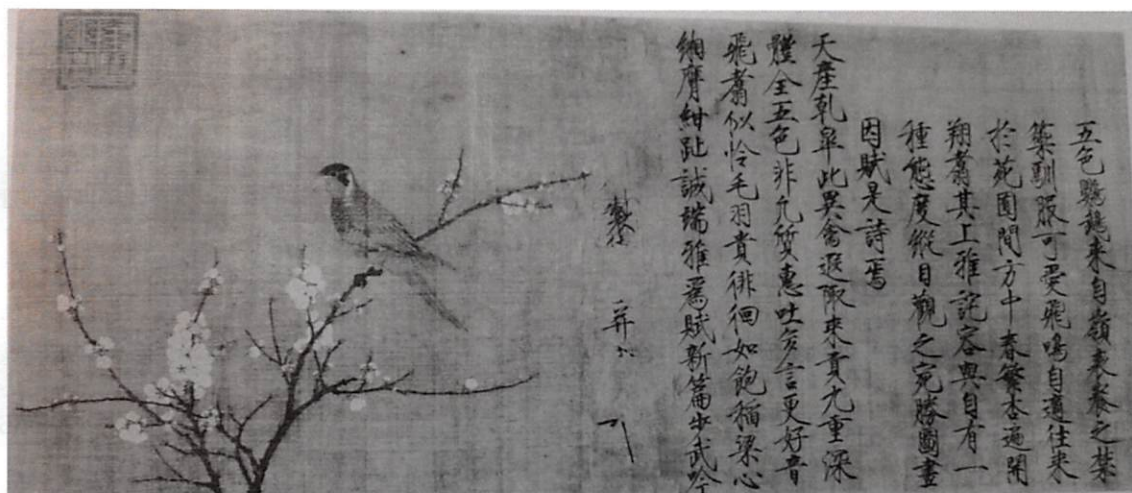 五色鸚鵡來自嶺表養之禁
籞馴服可愛飛鳴自適往來
於苑囿間方中春繁杏遍開
翔翥其上雅詫容與自有一
種態度縱目觀之宛勝圖畫
因賦是詩焉
天產乾皐此異禽遐陬來貢九重深
體全五色非凡質惠吐多言更好音
飛翥似怜毛羽貴徘徊如飽稻粱心
緗膺紺趾誠端雅爲賦新篇步武吟
製 并